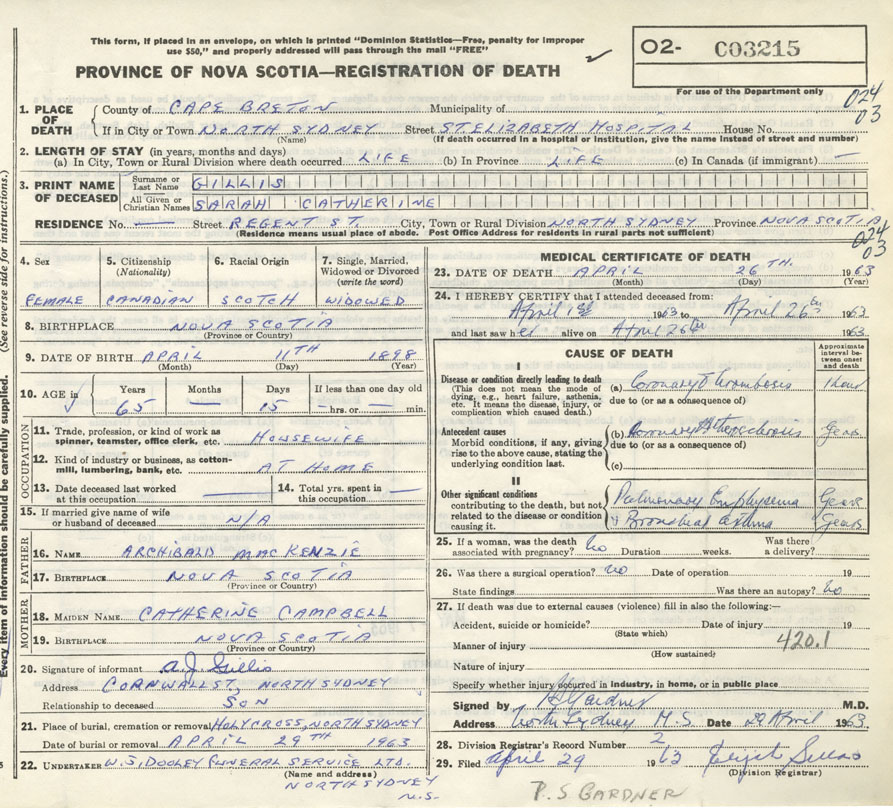 This form, if placed in an envelope, on which is printed "Dominion Statistics—Free, penalty for improper
use $50," and properly addressed will pass through the mail "FREE"
PROVINCE OF NOVA SCOTIA—REGISTRATION OF DEATH
O2- C03215
For use of the Department only
024
03
1. PLACE OF DEATH
County of CAPE BRETON Municipality of
If in City or Town NORTH SYDNEY Street ST ELIZABETH HOSPITAL House No.
(Name) (If death occurred in a hospital or institution, give the name instead of street and number)
2. LENGTH OF STAY (in years, months and days)
(a) In City, Town or Rural Division where death occurred LIFE (b) In Province LIFE (c) In Canada (if immigrant) —
3. PRINT NAME OF DECEASED
Surname or Last Name GILLIS
All Given or Christian Names SARAH CATHERINE
RESIDENCE No. — Street REGENT ST. City, Town or Rural Division NORTH SYDNEY Province NOVA SCOTIA
(Residence means usual place of abode. Post Office Address for residents in rural parts not sufficient)
024
03
4. Sex 5. Citizenship (Nationality) 6. Racial Origin 7. Single, Married, Widowed or Divorced (write the word)
FEMALE CANADIAN SCOTCH WIDOWED
8. BIRTHPLACE NOVA SCOTIA
(Province or Country)
9. DATE OF BIRTH APRIL 11TH 1898
(Month) (Day) (Year)
10. AGE in Years Months Days If less than one day old
✓ 65 — 15 — hrs. or — min.
OCCUPATION
11. Trade, profession, or kind of work as spinner, teamster, office clerk, etc. HOUSEWIFE
12. Kind of industry or business, as cotton-mill, lumbering, bank, etc. AT HOME
13. Date deceased last worked at this occupation — 14. Total yrs. spent in this occupation —
15. If married give name of wife or husband of deceased N/A
FATHER
16. NAME ARCHIBALD MACKENZIE
17. BIRTHPLACE NOVA SCOTIA
(Province or Country)
MOTHER
18. MAIDEN NAME CATHERINE CAMPBELL
19. BIRTHPLACE NOVA SCOTIA
(Province or Country)
20. Signature of informant A.J. Gillis
Address CORNWALL ST. NORTH SYDNEY
Relationship to deceased SON
21. Place of burial, cremation or removal HOLY CROSS, NORTH SYDNEY
Date of burial or removal APRIL 29TH 1963
22. UNDERTAKER W.S. DOOLEY FUNERAL SERVICE LTD.
(Name and address)
NORTH SYDNEY
N.S.
MEDICAL CERTIFICATE OF DEATH
23. DATE OF DEATH APRIL 26TH. 1963
(Month) (Day) (Year)
24. I HEREBY CERTIFY that I attended deceased from:
April 1st 1963 to April 26th 1963
and last saw her alive on April 26th 1963
CAUSE OF DEATH
Approximate interval between onset and death
I
Disease or condition directly leading to death
(This does not mean the mode of dying, e.g., heart failure, asthenia, etc. It means the disease, injury, or complication which caused death.)
(a) Coronary Thrombosis 1 hour
due to (or as a consequence of)
Antecedent causes
Morbid conditions, if any, giving rise to the above cause, stating the underlying condition last.
(b) Coronary Atherosclerosis Years
due to (or as a consequence of)
(c)
II
Other significant conditions
contributing to the death, but not related to the disease or condition causing it.
Pulmonary Emphysema Years
& Bronchial Asthma Years
25. If a woman, was the death associated with pregnancy? No Duration weeks. Was there a delivery?
26. Was there a surgical operation? No Date of operation 19
State findings Was there an autopsy? No
27. If death was due to external causes (violence) fill in also the following:—
Accident, suicide or homicide? Date of injury 19
(State which)
Manner of injury 420.1
(How sustained)
Nature of injury
Specify whether injury occurred in industry, in home, or in public place
Signed by Gardner M.D.
Address North Sydney N.S. Date 29 April 1963
28. Division Registrar's Record Number 2
29. Filed April 29 1963
(Division Registrar)
P.S GARDNER
Every item of information should be carefully supplied. (See reverse side for instructions.)